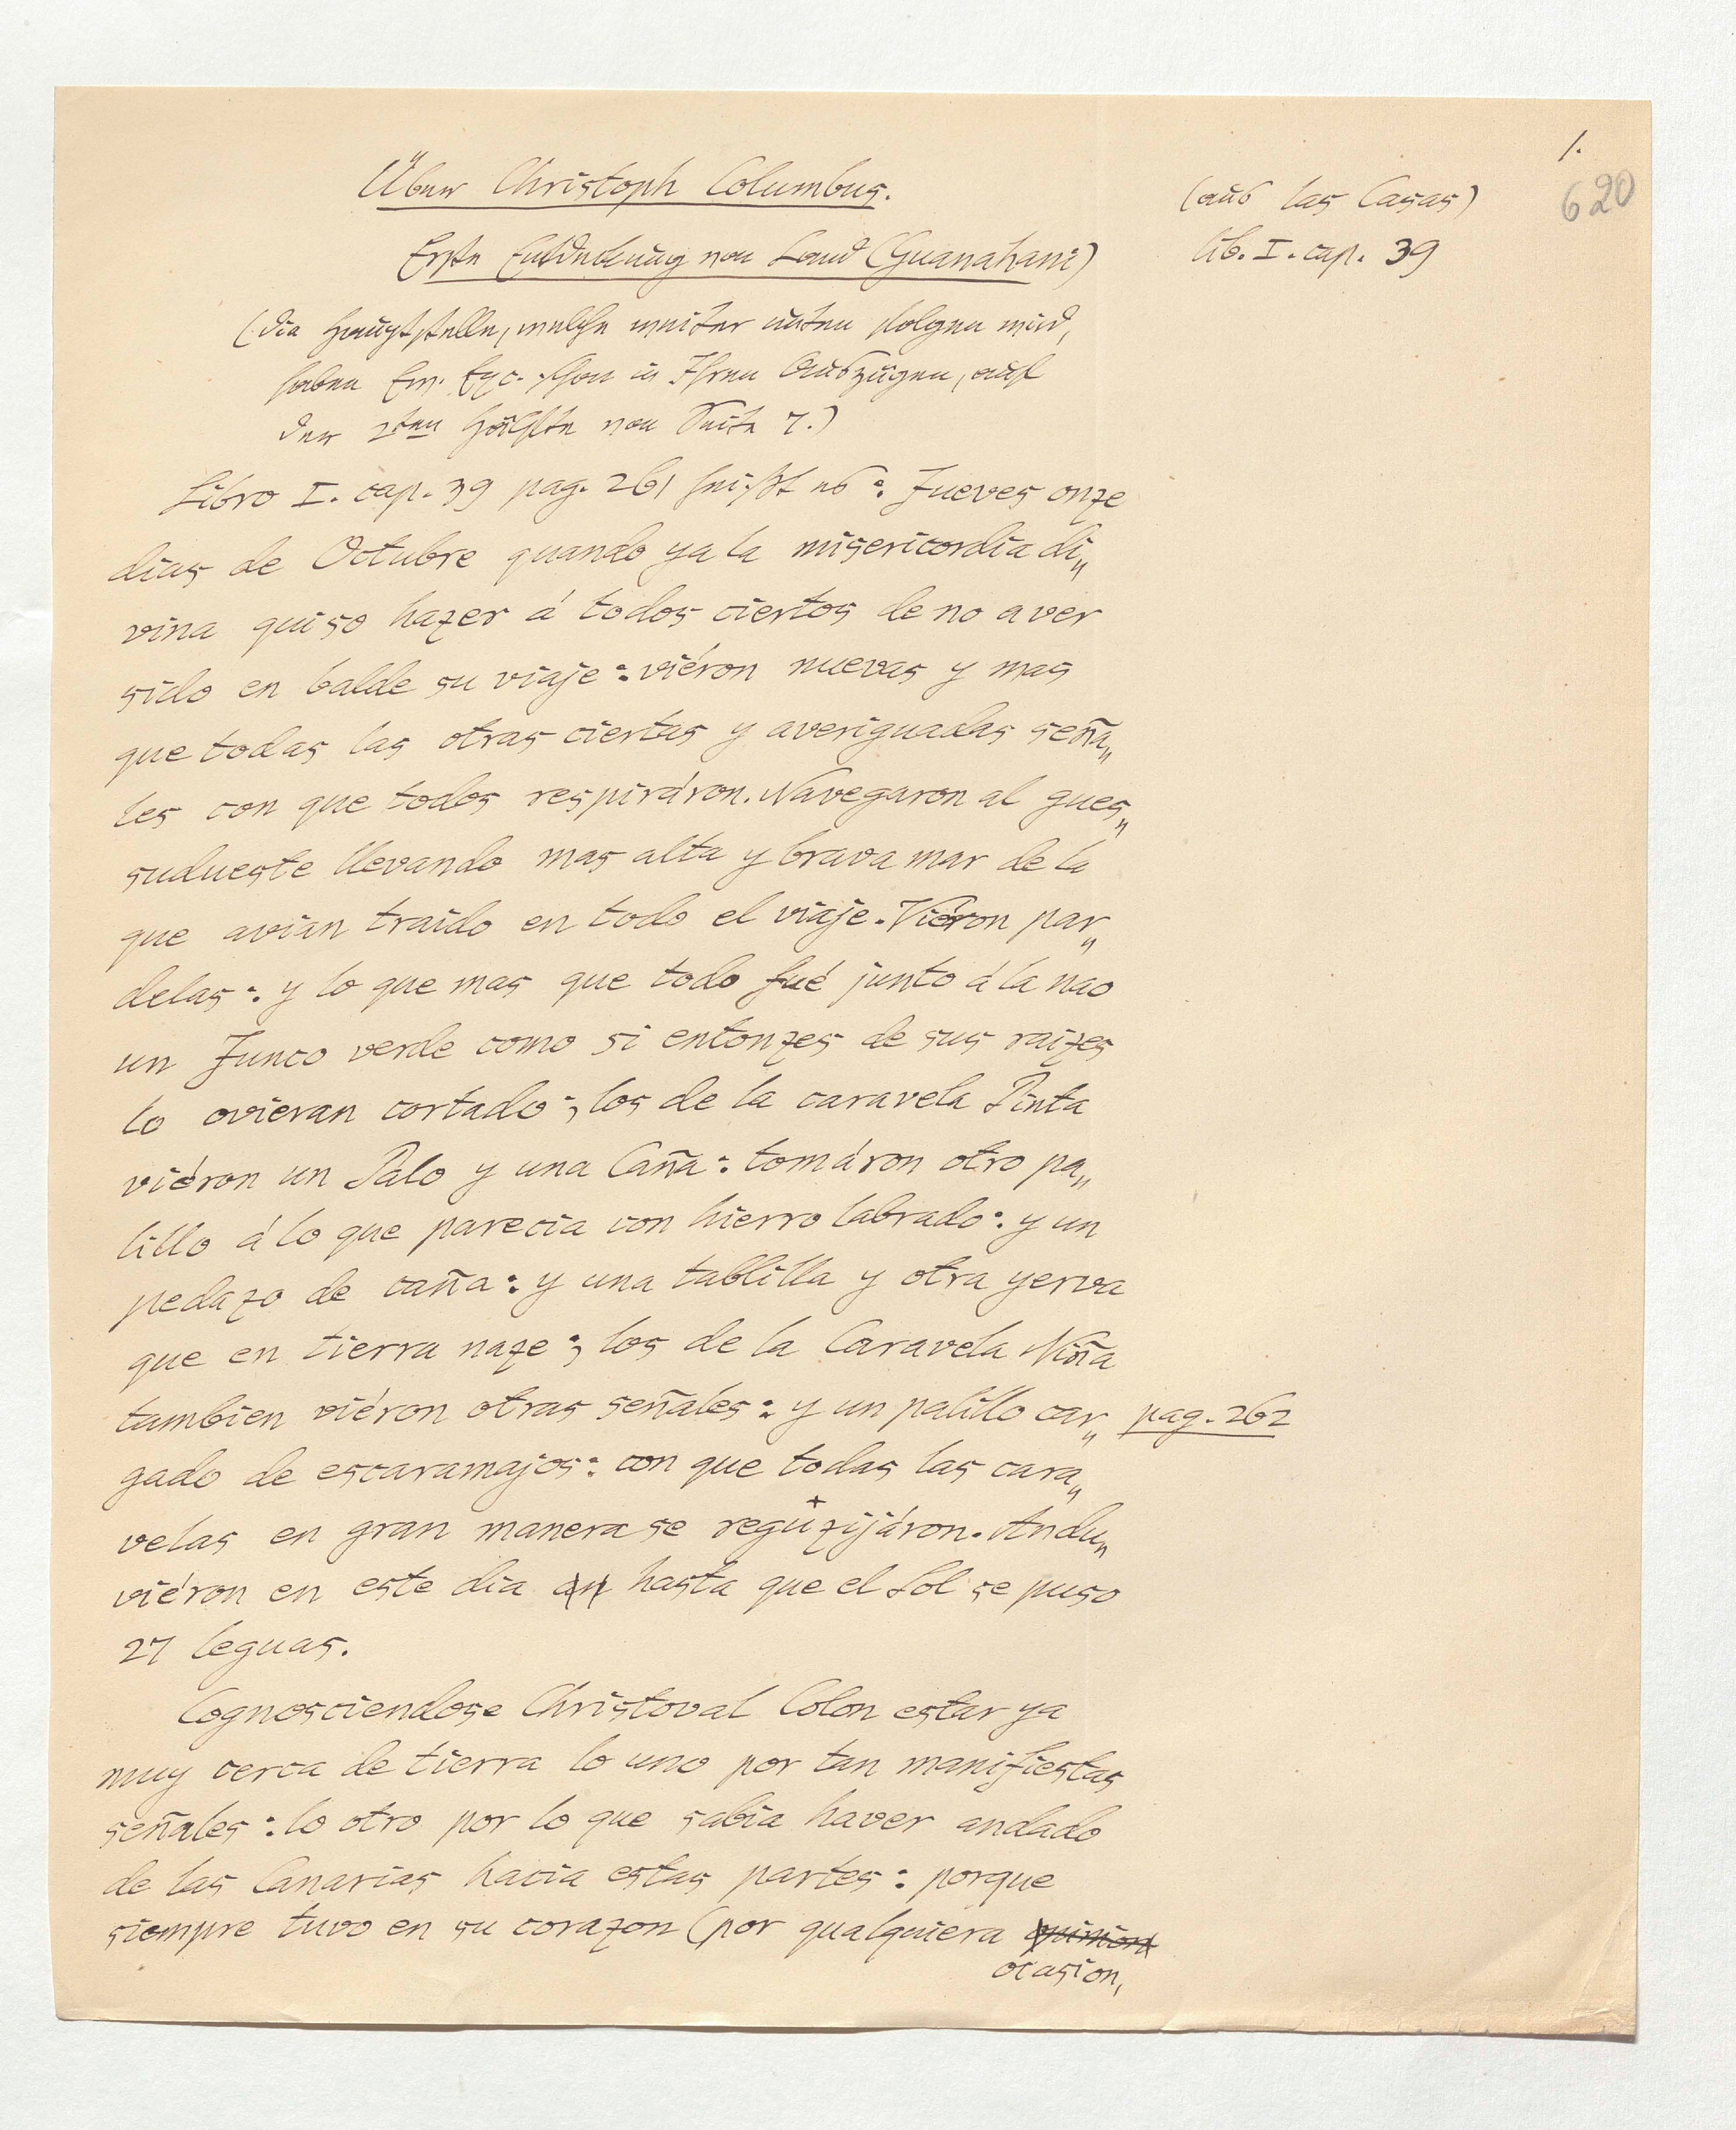 1.
620
Über Christoph Columbus.
(aus las Casas)
Erste Entdeckung von Land (Guanahani)
lib. I. cap. 39
(die Hauptstelle, welche weiter unten folgen wird,
haben Ew. Exc. schon in Ihren Auszügen, auf
der 2ten Hälfte von Seite 7.)
Libro I. cap. 39 pag. 261 heißt es: Jueves onze
dias de Octubre quando ya la misericordia di„
vina quiso hazer á todos ciertos de no aver
sido en balde su viaje: viéron nuevas y mas
que todas las otras ciertas y averiguadas seña„
les con que todos respiráron. Navegaron al gues„
sudueste llevando mas alta y brava mar de la
que avian traido en todo el viaje. Viéron par„
delas: y lo que mas que todo fué junto á la nao
un Junco verde como si entonzes de sus raizes
lo ovieran cortado; los de la caravela Pinta
viéron un Palo y una Caña: tomáron otro pa„
lillo á lo que parecia con hierro labrado: y un
pedazo de caña: y una tablilla y otra yerva
que en tierra naze; los de la Caravela Niña
tambien viéron otras señales: y un palillo car„
pag. 262
gado de escaramajos: con que todas las cara„
velas en gran manera se reguzijáron. Andu„
viéron en este dia an hasta que el Sol se puso
27 leguas.
Cognosciendose Christoval Colon estar ya
muy cerca de tierra lo uno por tan manifiestas
señales: lo otro por lo que sabia haver andado
de las Canarias hacia estas partes: porque
siempre tuvo en su corazon (por qualquiera opinion
ocasion,